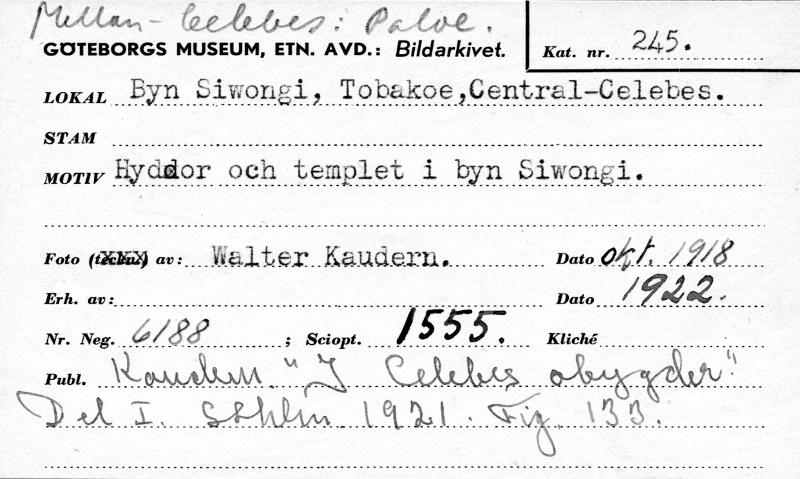 Mellan-Celebes: Paloe.
GÖTEBORGS MUSEUM, ETN. AVD.: Bildarkivet. Kat. nr. 245.
LOKAL Byn Siwongi, Tobakoe, Central-Celebes.
STAM
MOTIV Hyddor och templet i byn Siwongi.
Foto (teckn.) av: Walter Kaudern. Dato okt. 1918
Erh. av: Dato 1922.
Nr. Neg. 6188 ; Sciopt. 1555. Kliché
Publ. Kaudern "I Celebes obygder"
Del I. Sthlm 1921. Fig. 133.